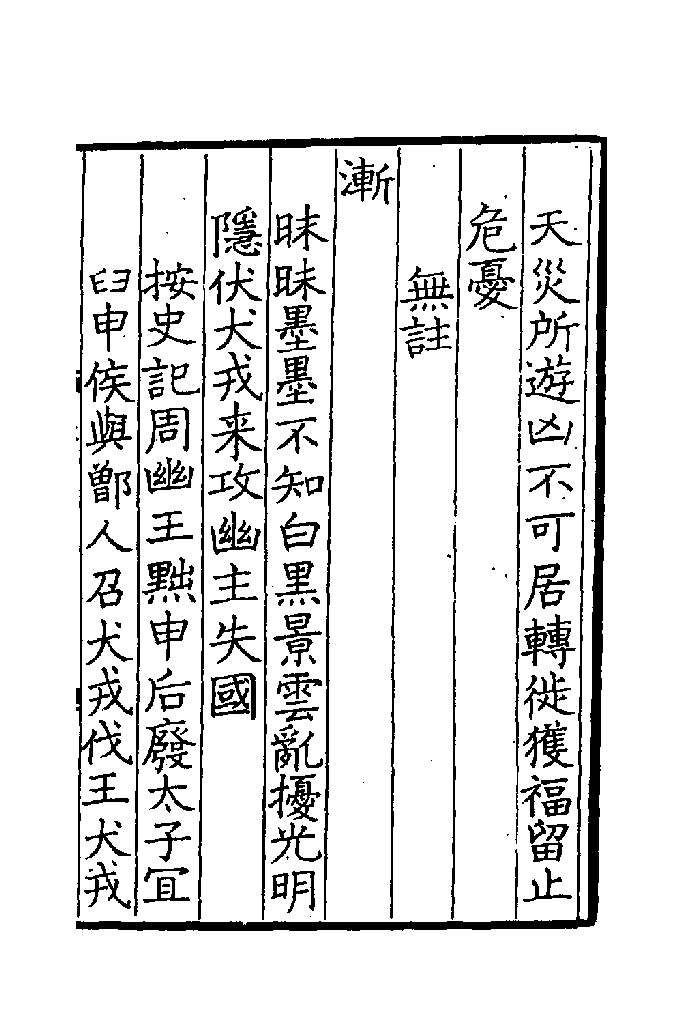 天災所遊凶不可居轉徙獲福留止
危憂
無註
漸
昧昧墨墨不知白黒景雲亂擾光明
隱伏犬戎来攻幽主失國
按史記周幽王黜申后廢太子宜
臼申侯與鄫人召犬戎伐王犬戎